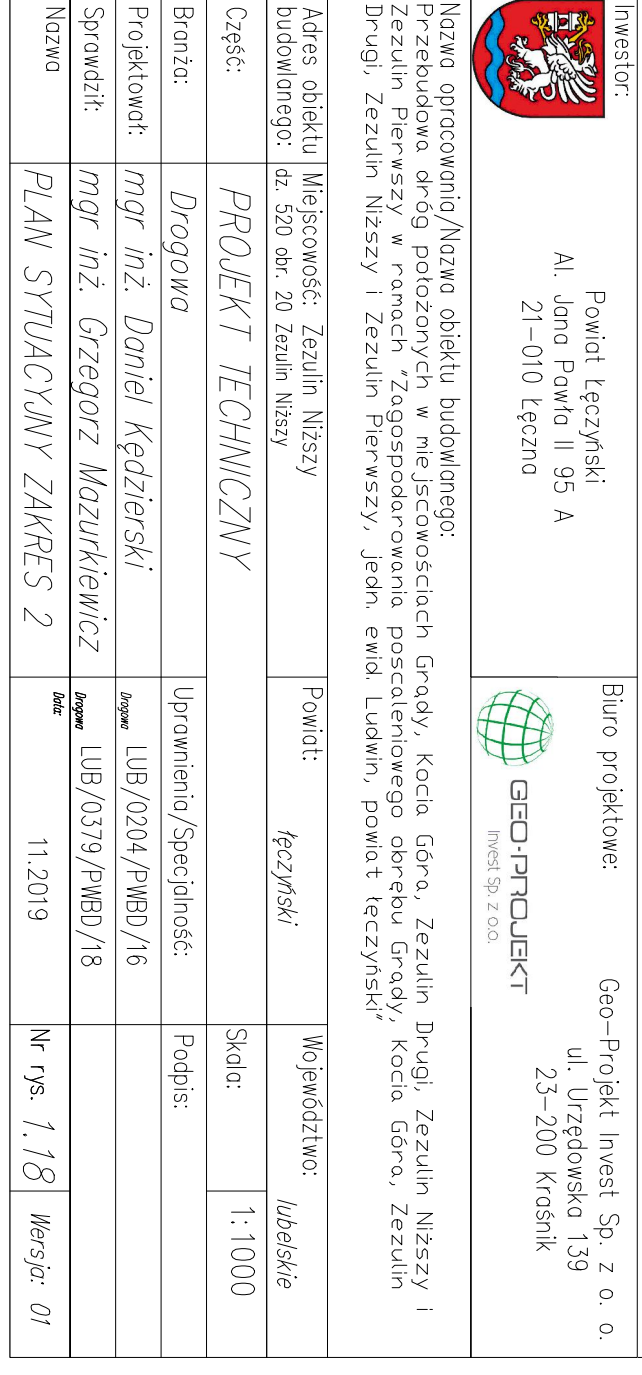 Inwestor:
Powiat Łęczyński
Al. Jana Pawła II 95 A
21-010 Łęczna
Biuro projektowe:
GEO-PROJEKT
Invest Sp. z o.o.
Geo-Projekt Invest Sp. z o. o.
ul. Urzędowska 139
23-200 Kraśnik
Nazwa opracowania/Nazwa obiektu budowlanego:
Przebudowa dróg położonych w miejscowościach Grądy, Kocia Góra, Zezulin Drugi, Zezulin Niższy i
Zezulin Pierwszy w ramach "Zagospodarowania poscaleniowego obrębu Grądy, Kocia Góra, Zezulin
Drugi, Zezulin Niższy i Zezulin Pierwszy, jedn. ewid. Ludwin, powiat łęczyński"
Adres obiektu budowlanego:
Miejscowość: Zezulin Niższy
dz. 520 obr. 20 Zezulin Niższy
Powiat: łęczyński
Województwo: lubelskie
Część: PROJEKT TECHNICZNY
Skala: 1:1000
Branża: Drogowa
Uprawnienia/Specjalność:
Podpis:
Projektował: mgr inż. Daniel Kędzierski
Drogowa LUB/0204/PWBD/16
Sprawdził: mgr inż. Grzegorz Mazurkiewicz
Drogowa LUB/0379/PWBD/18
Nazwa PLAN SYTUACYJNY ZAKRES 2
Data: 11.2019
Nr rys. 1.18
Wersja: 01